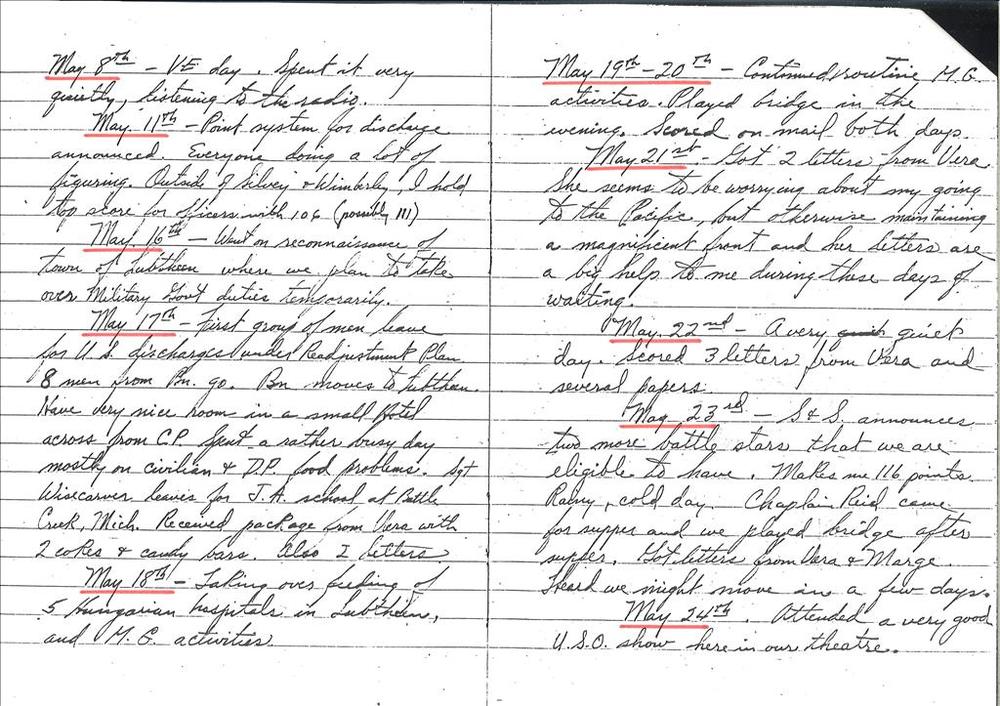 May 8th – VE day. Spent it very
quietly, listening to the radio.
May 11th – Point system for discharge
announced. Everyone doing a lot of
figuring. Outside of Silvey & Wimberley, I hold
top score for officers with 106 (possibly 111)
May 16th – Went on reconnaissance of
town of Lubtheen where we plan to take
over Military Govt duties temporarily.
May 17th – First group of men leave
for U.S. discharges under Readjustment Plan
8 men from Bn. go. Bn moves to Lubtheen.
Have very nice room in a small Hotel
across from C.P. Spent a rather busy day
mostly on civilian & D.P. food problems. Sgt
Wisecarver leaves for J.A. school at Battle
Creek, Mich. Received package from Vera with
2 cokes & candy bars. Also 2 letters
May 18th – Taking over feeding of
5 Hungarian hospitals in Lubtheen,
and M.G. activities.
May 19th–20th – Continued routine M.G.
activities. Played bridge in the
evening. Scored on mail both days.
May 21st – Got 2 letters from Vera
She seems to be worrying about my going
to the Pacific, but otherwise maintaining
a magnificent front and her letters are
a big help to me during these days of
waiting.
May 22nd – A very quiet
day. Scored 3 letters from Vera and
several papers.
May 23rd – S&S. announces
two more battle stars that we are
eligible to have. Makes me 116 points.
Rainy, cold day. Chaplain Reid came
for supper and we played bridge after
supper. Got letters from Vera & Marge.
Heard we might move in a few days.
May 24th. Attended a very good
U.S.O. show here in our theatre.